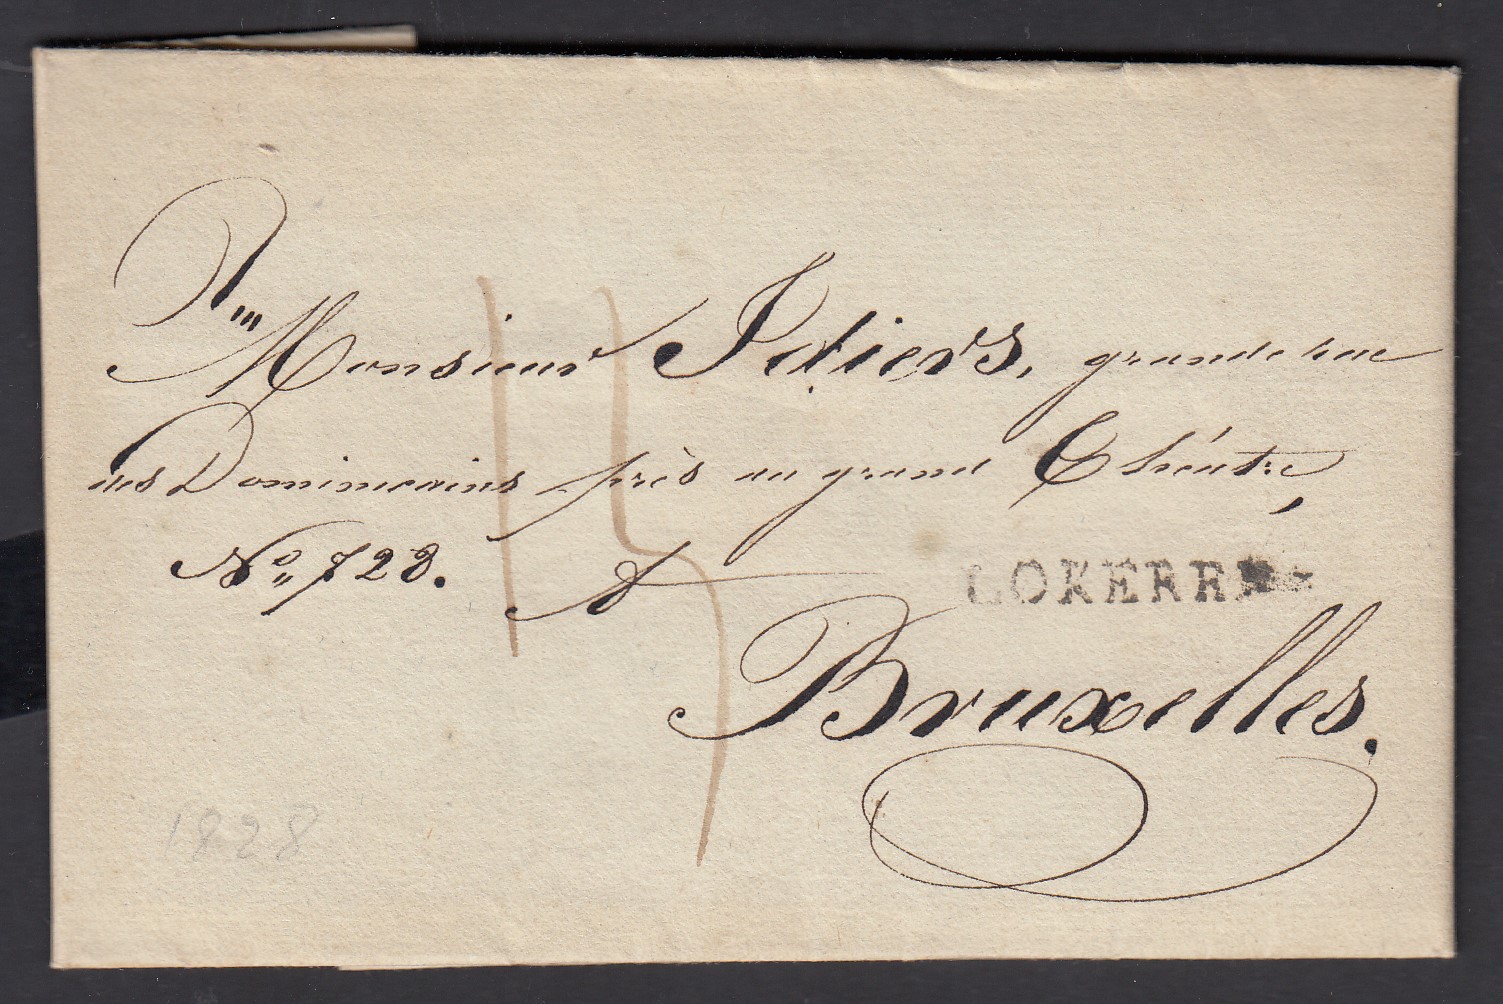 A
Monsieur Idiers, grande rue
des Dominicains près du grand Théâtre,
No 728. A
LOKEREN
Bruxelles.
15
1828